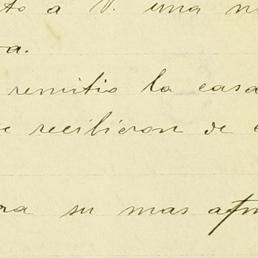 to a V. una n
a.
remitio la casa
e recibieron de
ra su mas afm